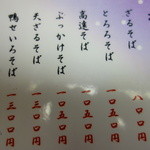 ざるそば 八〇〇円
とろろそば 一〇五〇円
高遠そば 一〇五〇円
ぶっかけそば 一〇五〇円
天ざるそば 一三〇〇円
鴨せいろそば 一三〇〇円